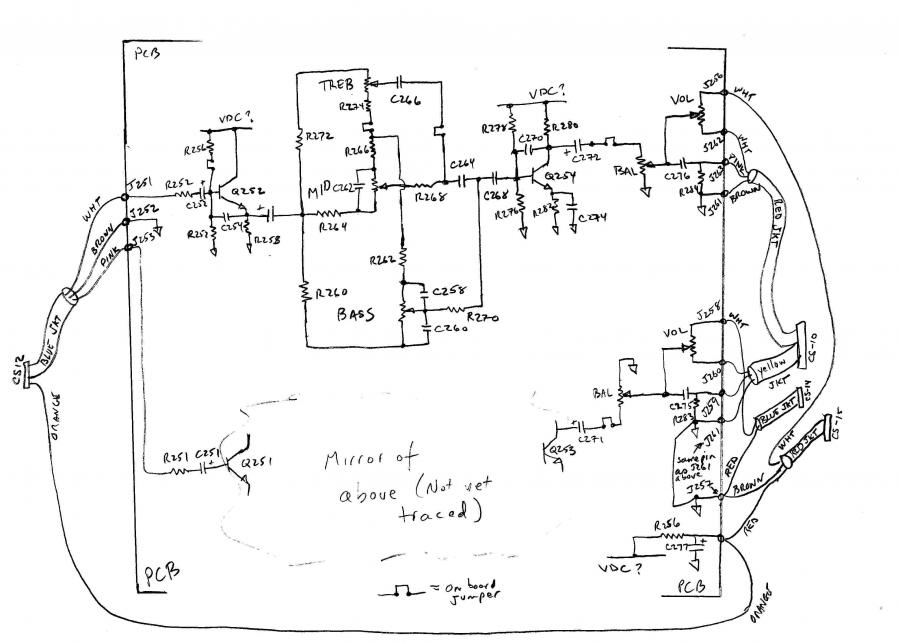 PCB
TREB
C266
R274
VDC?
R272
R266
R256
R252
C252
Q252
MID
C262
R268
C264
R264
R252
C254
R258
R260
R262
C258
BASS
C260
R270
VDC?
R278
C270
R280
C268
Q254
C272
R276
R282
C274
BAL
VOL
C276
R284
J256
WHT
J262
WHT
J263
PINK
J261
BROWN
RED JKT
J251
WHT
J252
BROWN
J253
PINK
BLUE JKT
CS12
ORANGE
J258
WHT
VOL
J260
BAL
C275
R283
J259
yellow
JKT
CS-10
BLUE JKT
CS-14
J261
same pin
as J261
above
RED
WHT
RED JKT
CS-15
J257
BROWN
RED
C271
Q253
R251
C251
Q251
Mirror of
above (Not yet
traced)
R256
C277
VDC?
PCB
PCB
= on board
jumper
ORANGE